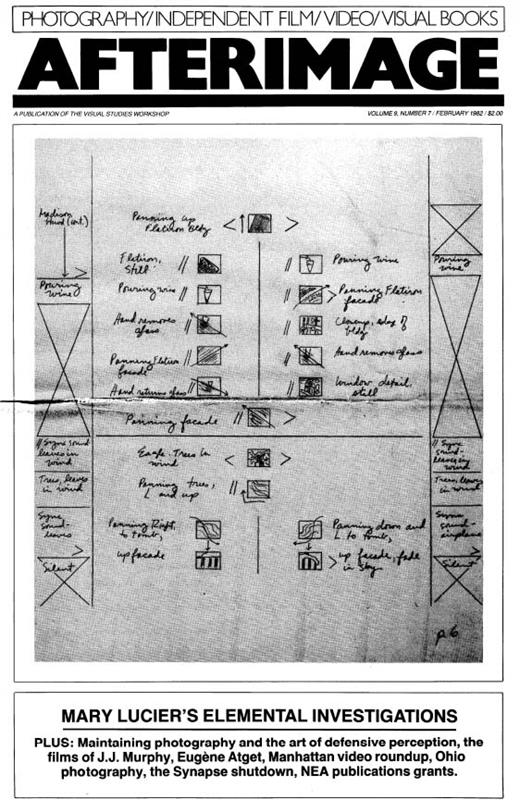 PHOTOGRAPHY/INDEPENDENT FILM/VIDEO/VISUAL BOOKS
AFTERIMAGE
A PUBLICATION OF THE VISUAL STUDIES WORKSHOP
VOLUME 9, NUMBER 7 / FEBRUARY 1982 / $2.00
Madison
(cont.)
Pouring
wine
// Sync sound
leaves in
wind
Trees, leaves
in wind
Sync
sound-
leaves
Silent
Panning up
Flatiron Bldg
Flatiron,
Still
Pouring wine
Hand removes
glass
Panning Flatiron
facade
Hand returns glass
Panning facade
Eagle. Trees in
wind
Panning trees,
L and up
Panning Right,
to tomb,
up facade
Pouring wine
Panning Flatiron
facade
Closeup, edge of
bldg
Hand removes glass
Window detail,
still
Panning down and
L to tomb,
up facade, fade
in sky
Pouring
wine
// Sync
sound-
leaves in
wind
Trees, leaves
in wind
Sync
sound-
airplane
Silent
p 6
MARY LUCIER'S ELEMENTAL INVESTIGATIONS
PLUS: Maintaining photography and the art of defensive perception, the
films of J.J. Murphy, Eugène Atget, Manhattan video roundup, Ohio
photography, the Synapse shutdown, NEA publications grants.